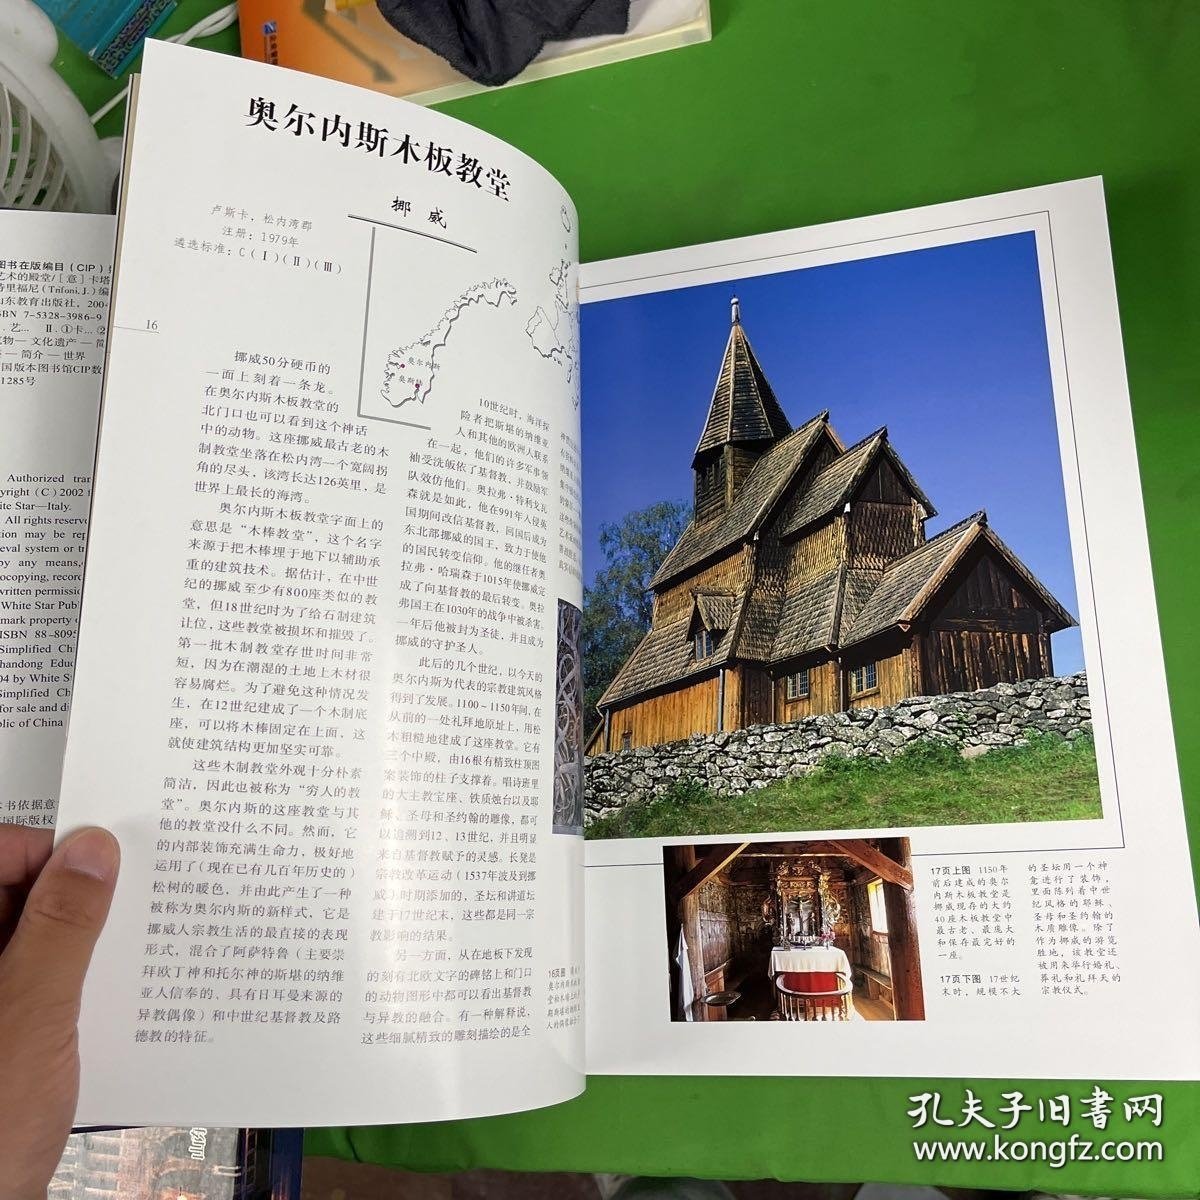 奥尔内斯木板教堂
挪 威
卢斯卡，松内湾郡
注册：1979年
遴选标准：C（Ⅰ）（Ⅱ）（Ⅲ）
奥尔内斯
奥斯陆
16
挪威50分硬币的
一面上刻着一条龙。
在奥尔内斯木板教堂的
北门口也可以看到这个神话
中的动物。这座挪威最古老的木
制教堂坐落在松内湾一个宽阔拐
角的尽头，该湾长达126英里，是
世界上最长的海湾。
奥尔内斯木板教堂字面上的
意思是“木棒教堂”，这个名字
来源于把木棒埋于地下以辅助承
重的建筑技术。据估计，在中世
纪的挪威至少有800座类似的教
堂，但18世纪时为了给石制建筑
让位，这些教堂被损坏和摧毁了。
第一批木制教堂存世时间非常
短，因为在潮湿的土地上木材很
容易腐烂。为了避免这种情况发
生，在12世纪建成了一个木制底
座，可以将木棒固定在上面，这
就使建筑结构更加坚实可靠。
这些木制教堂外观十分朴素
简洁，因此也被称为“穷人的教
堂”。奥尔内斯的这座教堂与其
他的教堂没什么不同。然而，它
的内部装饰充满生命力，极好地
运用了（现在已有几百年历史的）
松树的暖色，并由此产生了一种
被称为奥尔内斯的新样式，它是
挪威人宗教生活的最直接的表现
形式，混合了阿萨特鲁（主要崇
拜欧丁神和托尔神的斯堪的纳维
亚人信奉的、具有日耳曼来源的
异教偶像）和中世纪基督教及路
德教的特征。
10世纪时，海洋探
险者把斯堪的纳维亚
人和其他的欧洲人联系
在一起，他们的许多军事领
袖受洗皈依了基督教，并鼓励军
队效仿他们。奥拉弗·特利戈瓦
森就是如此，他在991年入侵英
国期间改信基督教，回国后成为
东北部挪威的国王，致力于使他
的国民转变信仰。他的继任者奥
拉弗·哈瑞森于1015年使挪威完
成了向基督教的最后转变。奥拉
弗国王在1030年的战争中被杀害。
一年后他被封为圣徒，并且成为
挪威的守护圣人。
此后的几个世纪，以今天的
奥尔内斯为代表的宗教建筑风格
得到了发展。1100～1150年间，在
从前的一处礼拜地原址上，用松
木粗糙地建成了这座教堂。它有
三个中殿，由16根有精致柱顶图
案装饰的柱子支撑着。唱诗班里
的大主教宝座、铁质烛台以及耶
稣、圣母和圣约翰的雕像，都可
以追溯到12、13世纪，并且明显
来自基督教赋予的灵感。长凳是
宗教改革运动（1537年波及到挪
威）时期添加的，圣坛和讲道坛
建于17世纪末，这些都是同一宗
教影响的结果。
另一方面，从在地板下发现
的刻有北欧文字的碑铭上和门口
的动物图形中都可以看出基督教
与异教的融合。有一种解释说，
这些细腻精致的雕刻描绘的是全
17页上图 1150年
前后建成的奥尔
内斯木板教堂是
挪威现存的大约
40座木板教堂中
最古老、最庞大
和保存最完好的
一座。
17页下图 17世纪
末时，规模不大
的圣坛用一个神
龛进行了装饰，
里面陈列着中世
纪风格的耶稣、
圣母和圣约翰的
木质雕像。除了
作为挪威的游览
胜地，该教堂还
被用来举行婚礼、
葬礼和礼拜天的
宗教仪式。
孔夫子旧书网
www.kongfz.com